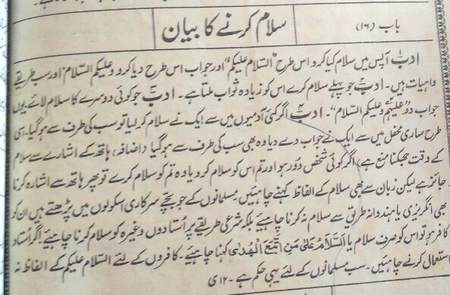 باب (۱۶) سلام کرنے کا بیان
ادب آپس میں سلام کیا کرو اس طرح "السلام علیکم" اور جواب اس طرح دیا کرو وعلیکم السلام اور سب طریقے
واہیات ہیں۔ ادب جو پہلے سلام کرے اس کو زیادہ ثواب ملتا ہے۔ ادب جو کوئی دوسرے کا سلام لائے یوں
جواب دو "علیہم وعلیکم السلام"۔ ادب اگر کئی آدمیوں میں سے ایک نے سلام کر لیا تو سب کی طرف سے ہو گیا۔ اسی
طرح ساری محفل میں سے ایک نے جواب دے دیا وہ بھی سب کی طرف سے ہو گیا (اضافہ، ہاتھ کے اشارے سے سلام
کے وقت جھکنا منع ہے) اگر کوئی شخص دور ہو اور تم اس کو سلام کرو یا وہ تم کو سلام کرے تو پھر ہاتھ سے اشارہ کرنا
جائز ہے لیکن زبان سے بھی سلام کے الفاظ کہنے چاہئیں مسلمانوں کے جو بچے سرکاری اسکولوں میں پڑھتے ہیں ان کو
بھی انگریزی یا ہندوانہ طریق سے سلام نہ کرنا چاہیئے بلکہ شرعی طریقے پر استادوں وغیرہ کو سلام کرنا چاہیئے۔ اگر استاد
کافر ہو تو اس کو صرف سلام یا السلام علی من اتبع الھدی کہنا چاہیئے۔ کافروں کے لئے السلام علیکم کے الفاظ نہ
استعمال کرنے چاہئیں۔ سب مسلمانوں کے لئے یہی حکم ہے۔ ۱۲